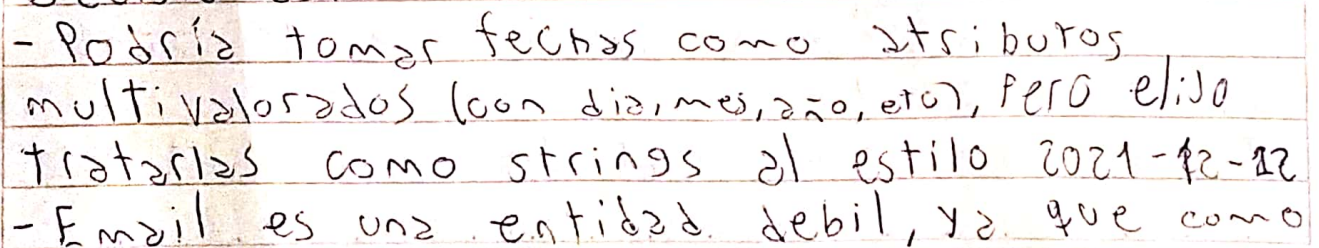 - Podría tomar fechas como atributos
multivalorados (con dia, mes, año, etc), pero elijo
tratarlas como strings al estilo 2021-12-12
- Email es una entidad debil, ya que como